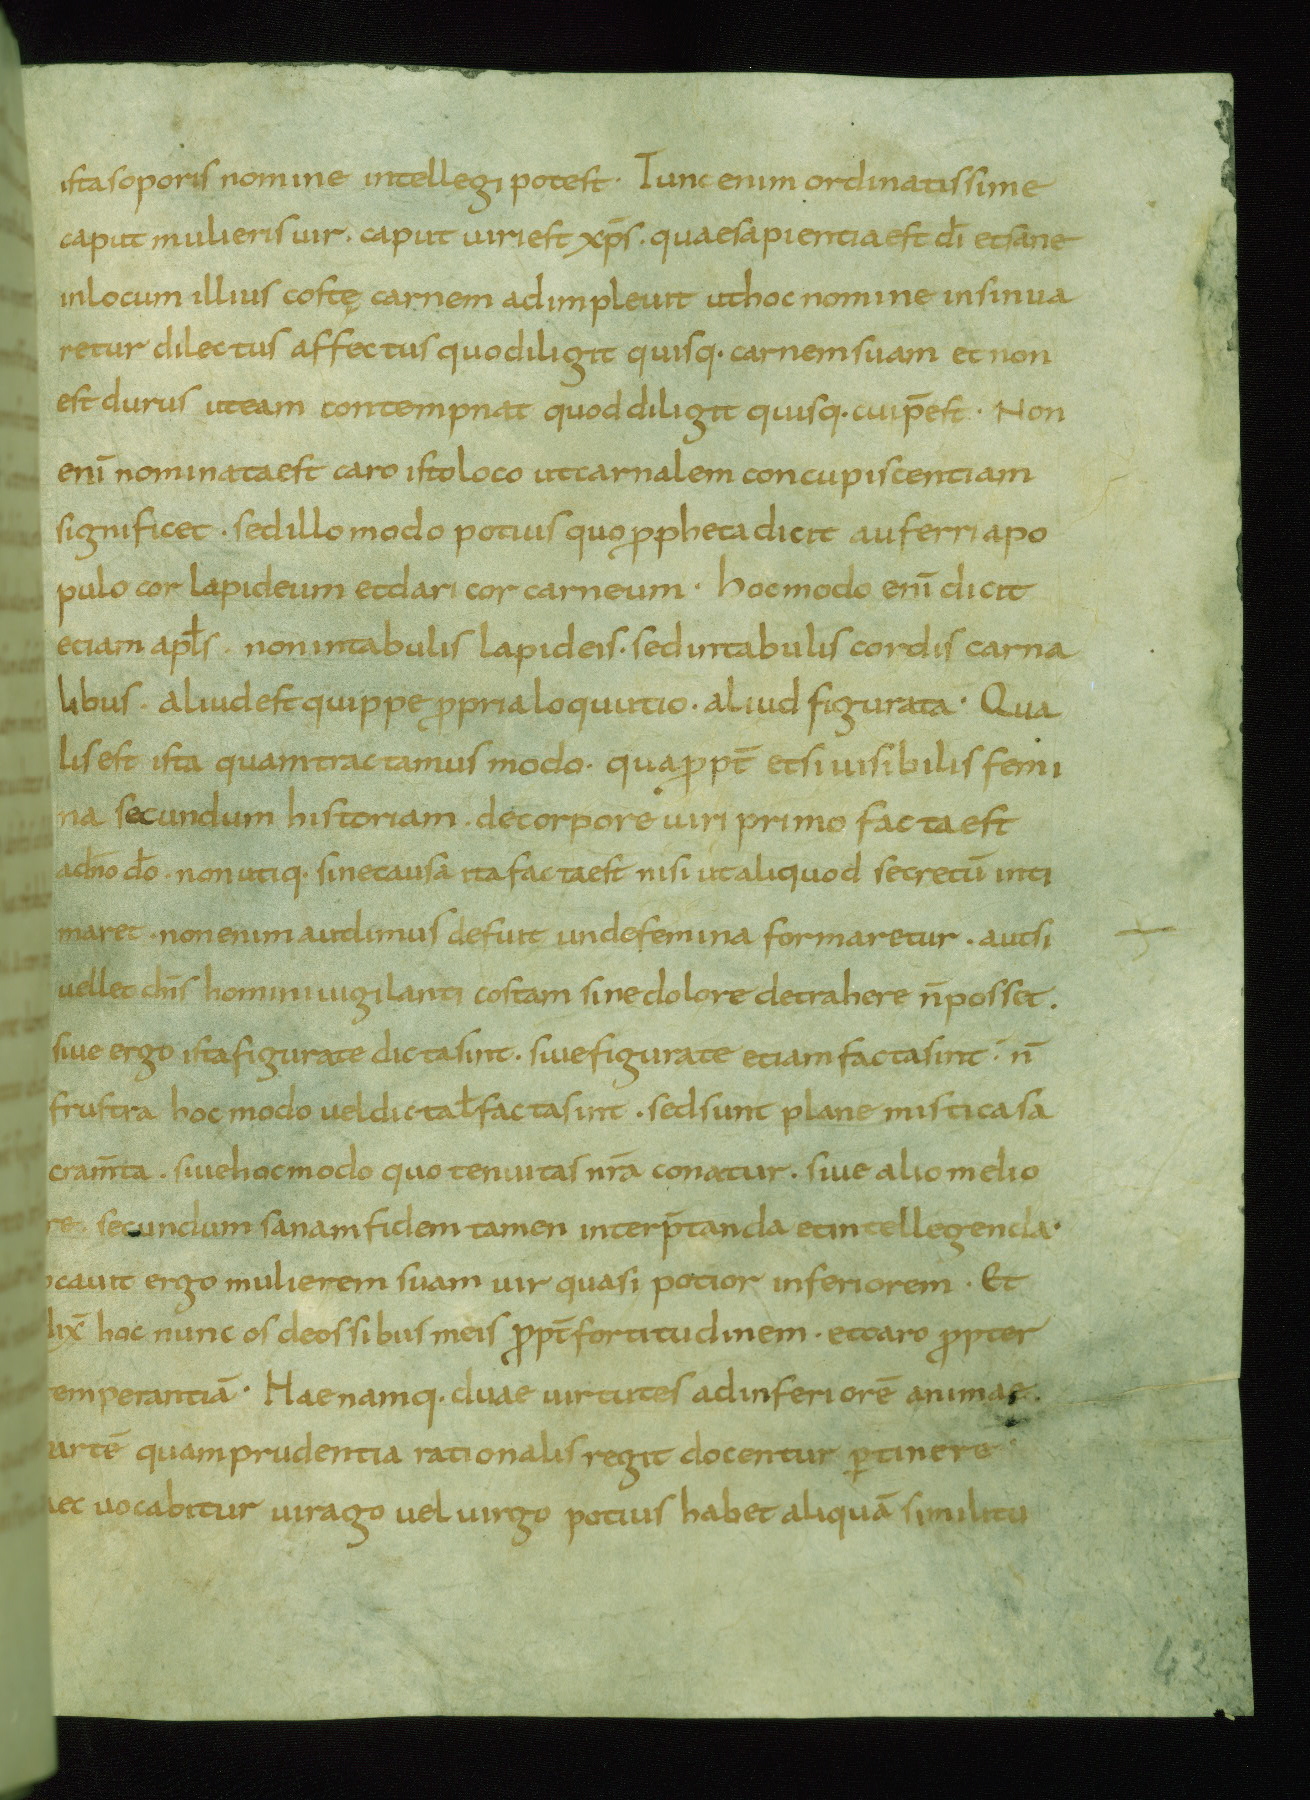 ista soporis nomine intellegi potest· Tunc enim ordinatissime
caput mulieris uir· caput uiri est xp̄s· quae sapientia est dī et sane
in locum illius costę carnem adimpleuit ut hoc nomine insinua
retur dilectus affectus quo diligit quisq· carnem suam et non
est durus ut eam contempnat quod diligit quisq· cui p̄est· Non
enī nominata est caro isto loco ut carnalem concupiscentiam
significet· sed illo modo potius quo ꝓpheta dicit auferri apo
pulo cor lapideum et dari cor carneum· hoc modo enī dicit
etiam apl̄s· non in tabulis lapideis· sed in tabulis cordis carna
libus· aliud est quippe ꝓpria loquutio· aliud figurata· Qua
lis est ista quam tractamus modo· quaꝓpt̄ etsi uisibilis femi
na secundum historiam· de corpore uiri primo facta est
a dn̄o dō· non utiq· sine causa ita facta est nisi ut aliquod secretū inti
maret· non enim aut limus defuit unde femina formaretur· aut si
uellet dn̄s homini uigilanti costam sine dolore detrahere n̄ posset·
siue ergo ista figurate dicta sint· siue figurate etiam facta sint· n̄
frustra hoc modo uel dicta ł facta sint· sed sunt plane mistica sa
cram̄ta· siue hoc modo quo tenuitas nrā conatur· siue alio melio
re· secundum sanam fidem tamen interp̄tanda et intellegenda·
ocauit ergo mulierem suam uir quasi potior inferiorem· Et
dix̄ hoc nunc os de ossibus meis ꝓpt̄ fortitudinem· et caro ꝓpter
temperantiā· Hae namq· duae uirtutes ad inferiorē animae·
artē quam prudentia rationalis regit docentur ꝑtinere
aec uocabitur uirago uel uirgo potius habet aliquā similitu
42